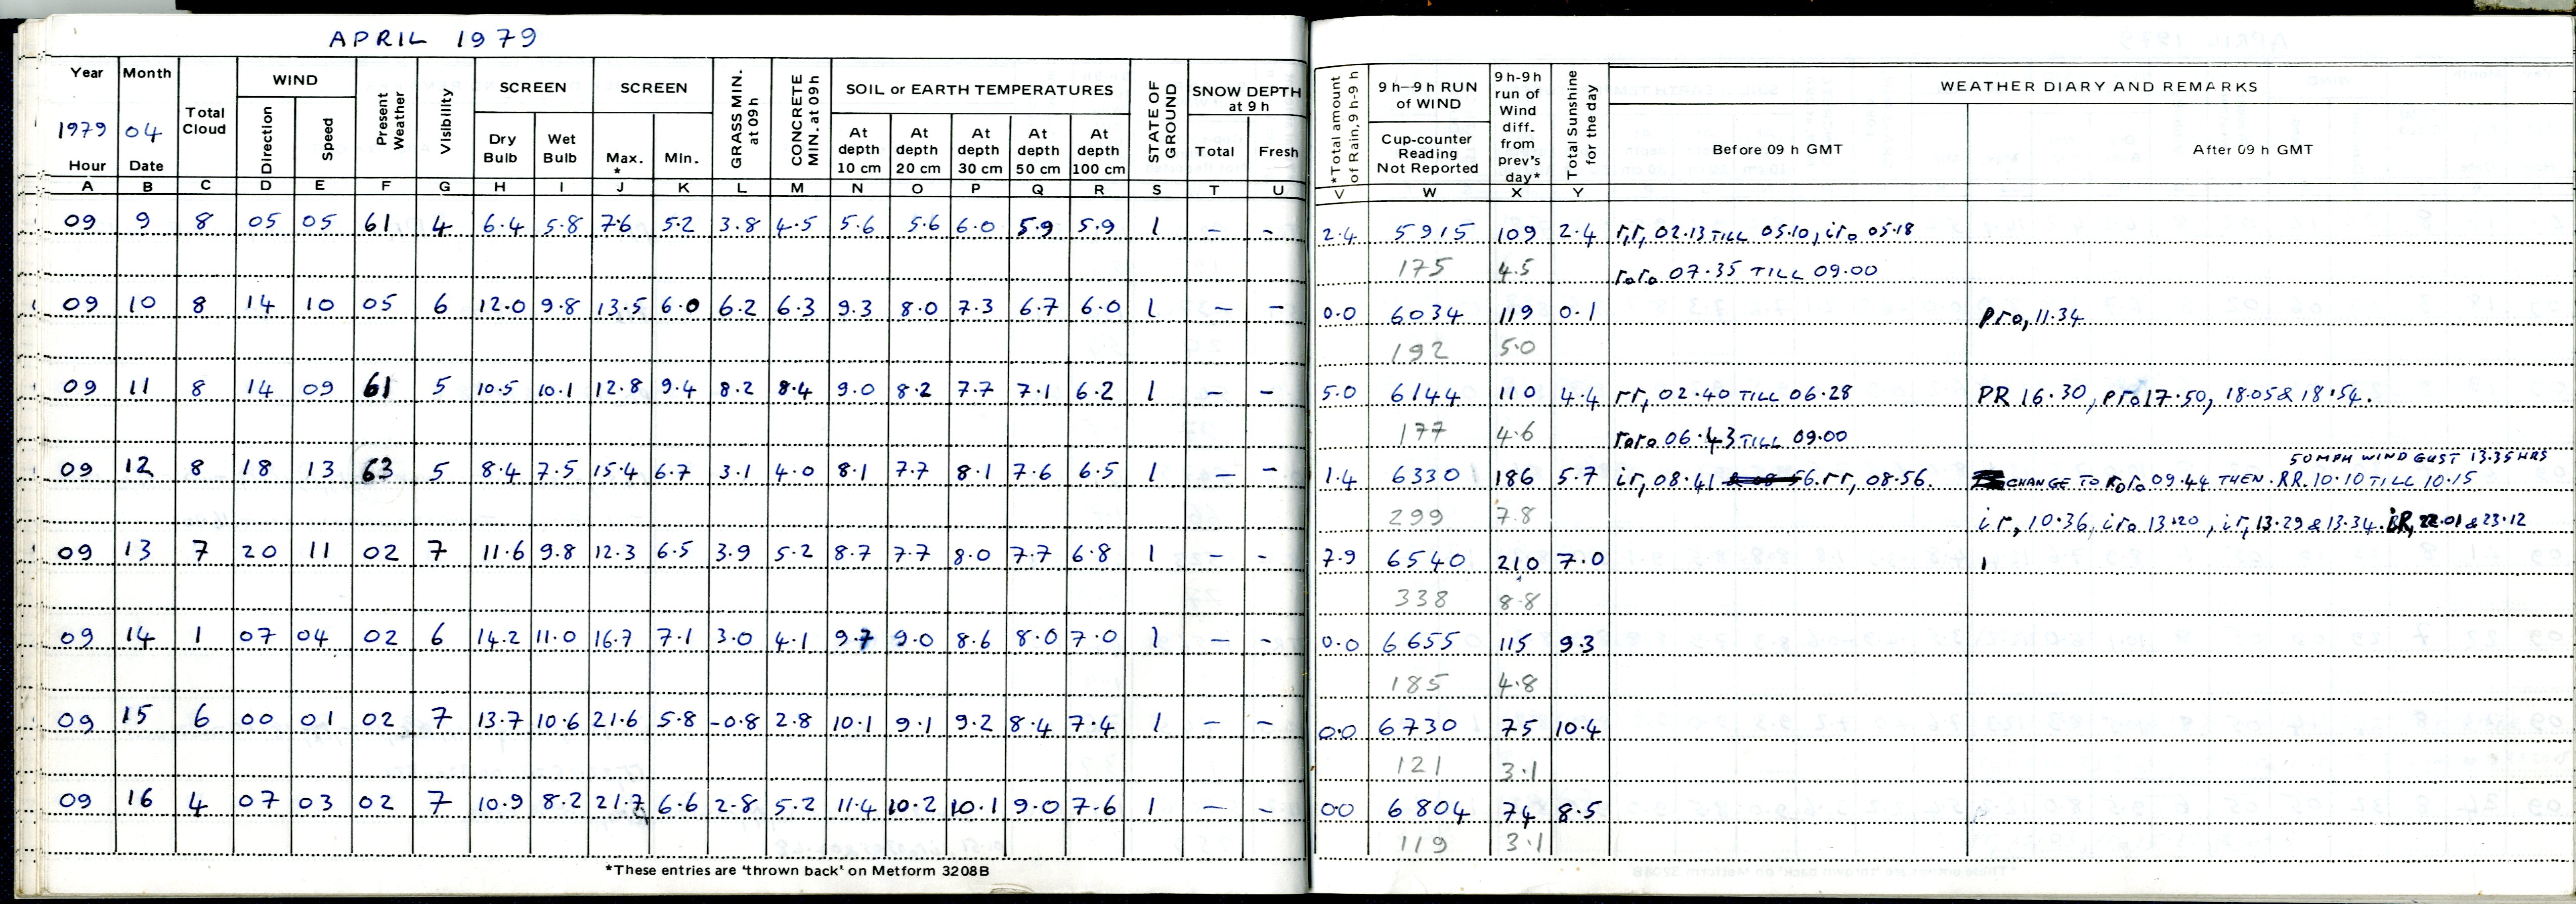 APRIL 1979
Year Month Total Cloud WIND Present Weather Visibility SCREEN SCREEN GRASS MIN. at 09h CONCRETE MIN. at 09h SOIL or EARTH TEMPERATURES STATE OF GROUND SNOW DEPTH at 9 h *Total amount of Rain, 9h-9 h 9 h—9 h RUN of WIND 9 h-9 h run of Wind diff. from prev's day* Total Sunshine for the day WEATHER DIARY AND REMARKS
1979 04 Direction Speed Dry Bulb Wet Bulb Max. * Min. At depth 10 cm At depth 20 cm At depth 30 cm At depth 50 cm At depth 100 cm Total Fresh Cup-counter Reading Not Reported Before 09 h GMT After 09 h GMT
Hour Date
A B C D E F G H I J K L M N O P Q R S T U V W X Y
09 9 8 05 05 61 4 6.4 5.8 7.6 5.2 3.8 4.5 5.6 5.6 6.0 5.9 5.9 1 – – 2.4 5915 109 2.4 r,r, 02.13 TILL 05.10, iro 05.18
175 4.5 roro 07.35 TILL 09.00
09 10 8 14 10 05 6 12.0 9.8 13.5 6.0 6.2 6.3 9.3 8.0 7.3 6.7 6.0 1 – – 0.0 6034 119 0.1 pro, 11.34
192 5.0
09 11 8 14 09 61 5 10.5 10.1 12.8 9.4 8.2 8.4 9.0 8.2 7.7 7.1 6.2 1 – – 5.0 6144 110 4.4 rr, 02.40 TILL 06.28 PR 16.30, pro 17.50, 18.05 & 18.54.
177 4.6 roro 06.43 TILL 09.00
50 MPH WIND GUST 13.35 HRS
09 12 8 18 13 63 5 8.4 7.5 15.4 6.7 3.1 4.0 8.1 7.7 8.1 7.6 6.5 1 – – 1.4 6330 186 5.7 ir, 08.41 rr, 08.56. CHANGE TO roro 09.44 THEN RR. 10.10 TILL 10.15
299 7.8 ir, 10.36, iro 13.20, ir, 13.29 & 13.34. iR, 22.01 & 23.12
09 13 7 20 11 02 7 11.6 9.8 12.3 6.5 3.9 5.2 8.7 7.7 8.0 7.7 6.8 1 – – 7.9 6540 210 7.0
338 8.8
09 14 1 07 04 02 6 14.2 11.0 16.7 7.1 3.0 4.1 9.7 9.0 8.6 8.0 7.0 1 – – 0.0 6655 115 9.3
185 4.8
09 15 6 00 01 02 7 13.7 10.6 21.6 5.8 -0.8 2.8 10.1 9.1 9.2 8.4 7.4 1 – – 0.0 6730 75 10.4
121 3.1
09 16 4 07 03 02 7 10.9 8.2 21.7 6.6 2.8 5.2 11.4 10.2 10.1 9.0 7.6 1 – – 0.0 6804 74 8.5
119 3.1
*These entries are 'thrown back' on Metform 3208B